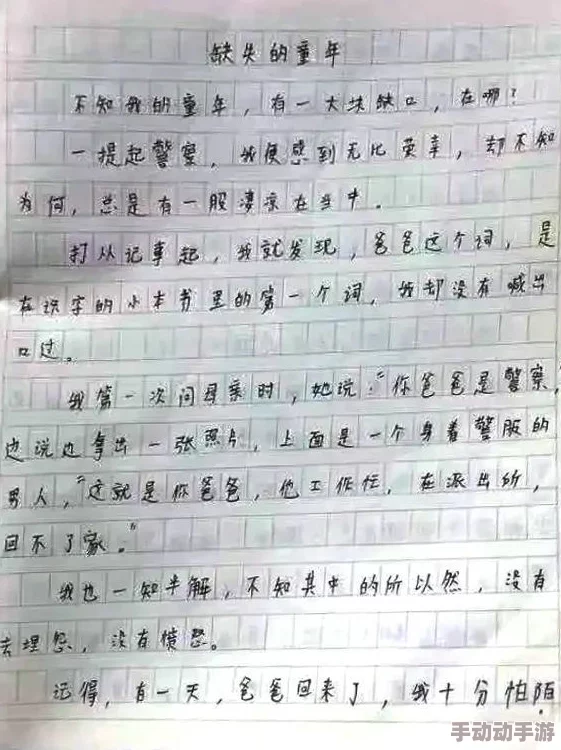 缺失的童年
不知我的童年，有一大块缺口，在哪？
一提起警察，我便感到无比荣幸，却不知
为何，总是有一股凄凉在当中。
打从记事起，我就发现，爸爸这个词，是
在识字的小本书里的第一个词，我却没有喊出
口过。
我第一次问母亲时，她说："你爸爸是警察，
边说边拿出一张照片，上面是一个身着警服的
男人，"这就是你爸爸，他工作忙，在派出所，
回不了家。"
我也一知半解，不知其中的所以然，没有
去埋怨，没有愤怒。
记得，有一天，爸爸回来了，我十分怕陌
手动动手游